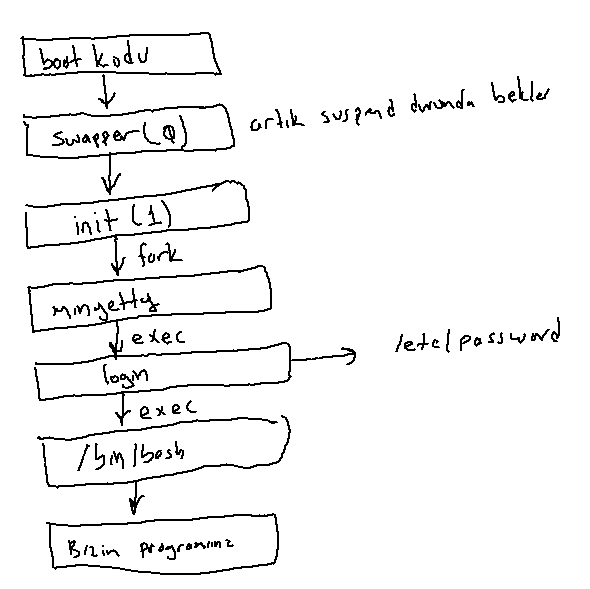 boot kodu
swapper(0)
artık suspend durumda bekler
init (1)
fork
mingetty
exec
login
/etc/password
exec
/bin/bash
Bizim programımız